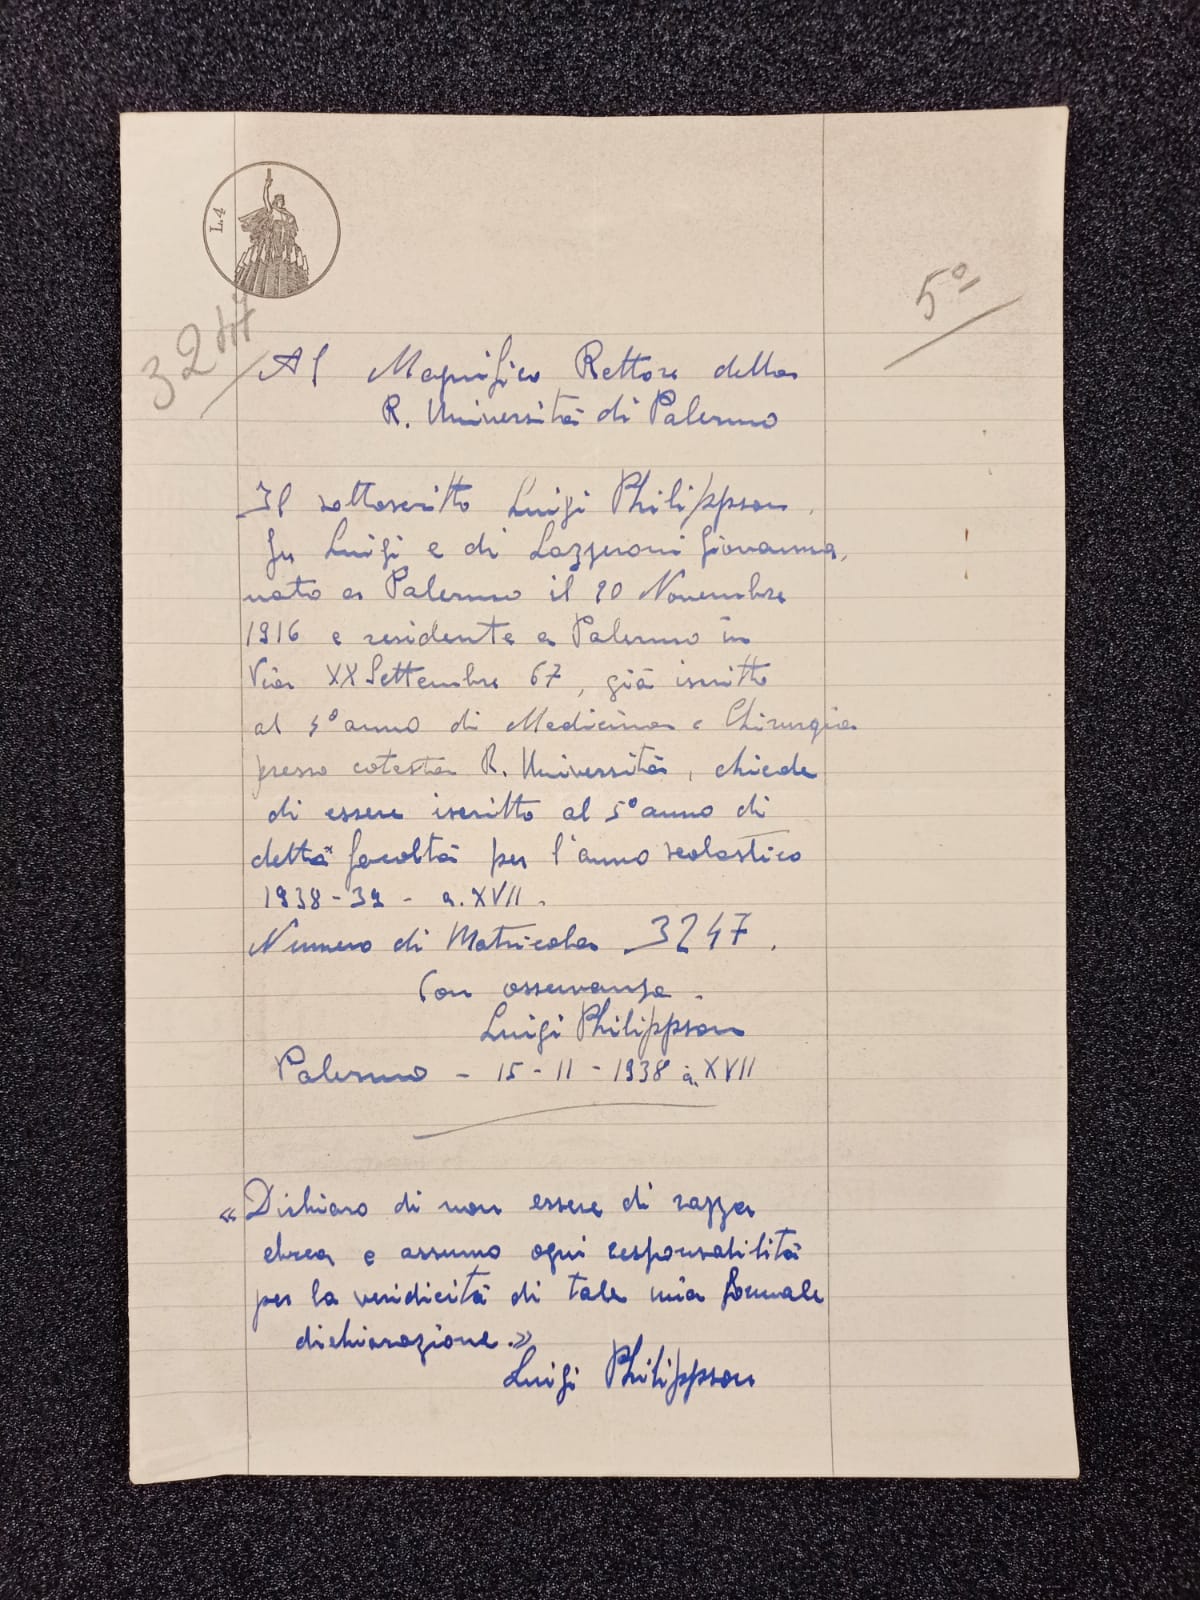 L.4
3247
5º
Al Magnifico Rettore della
R. Università di Palermo
Il sottoscritto Luigi Philippson
fu Luigi e di Lazzeroni Giovanna,
nato a Palermo il 20 Novembre
1916 e residente a Palermo in
Via XX Settembre 67, già iscritto
al 4º anno di Medicina e Chirurgia
presso cotesta R. Università, chiede
di essere iscritto al 5º anno di
detta facoltà per l'anno scolastico
1938-39 - a. XVII.
Numero di Matricola 3247.
Con osservanza.
Luigi Philippson
Palermo - 15-11-1938 a. XVII
«Dichiaro di non essere di razza
ebrea e assumo ogni responsabilità
per la veridicità di tale mia formale
dichiarazione.»
Luigi Philippson